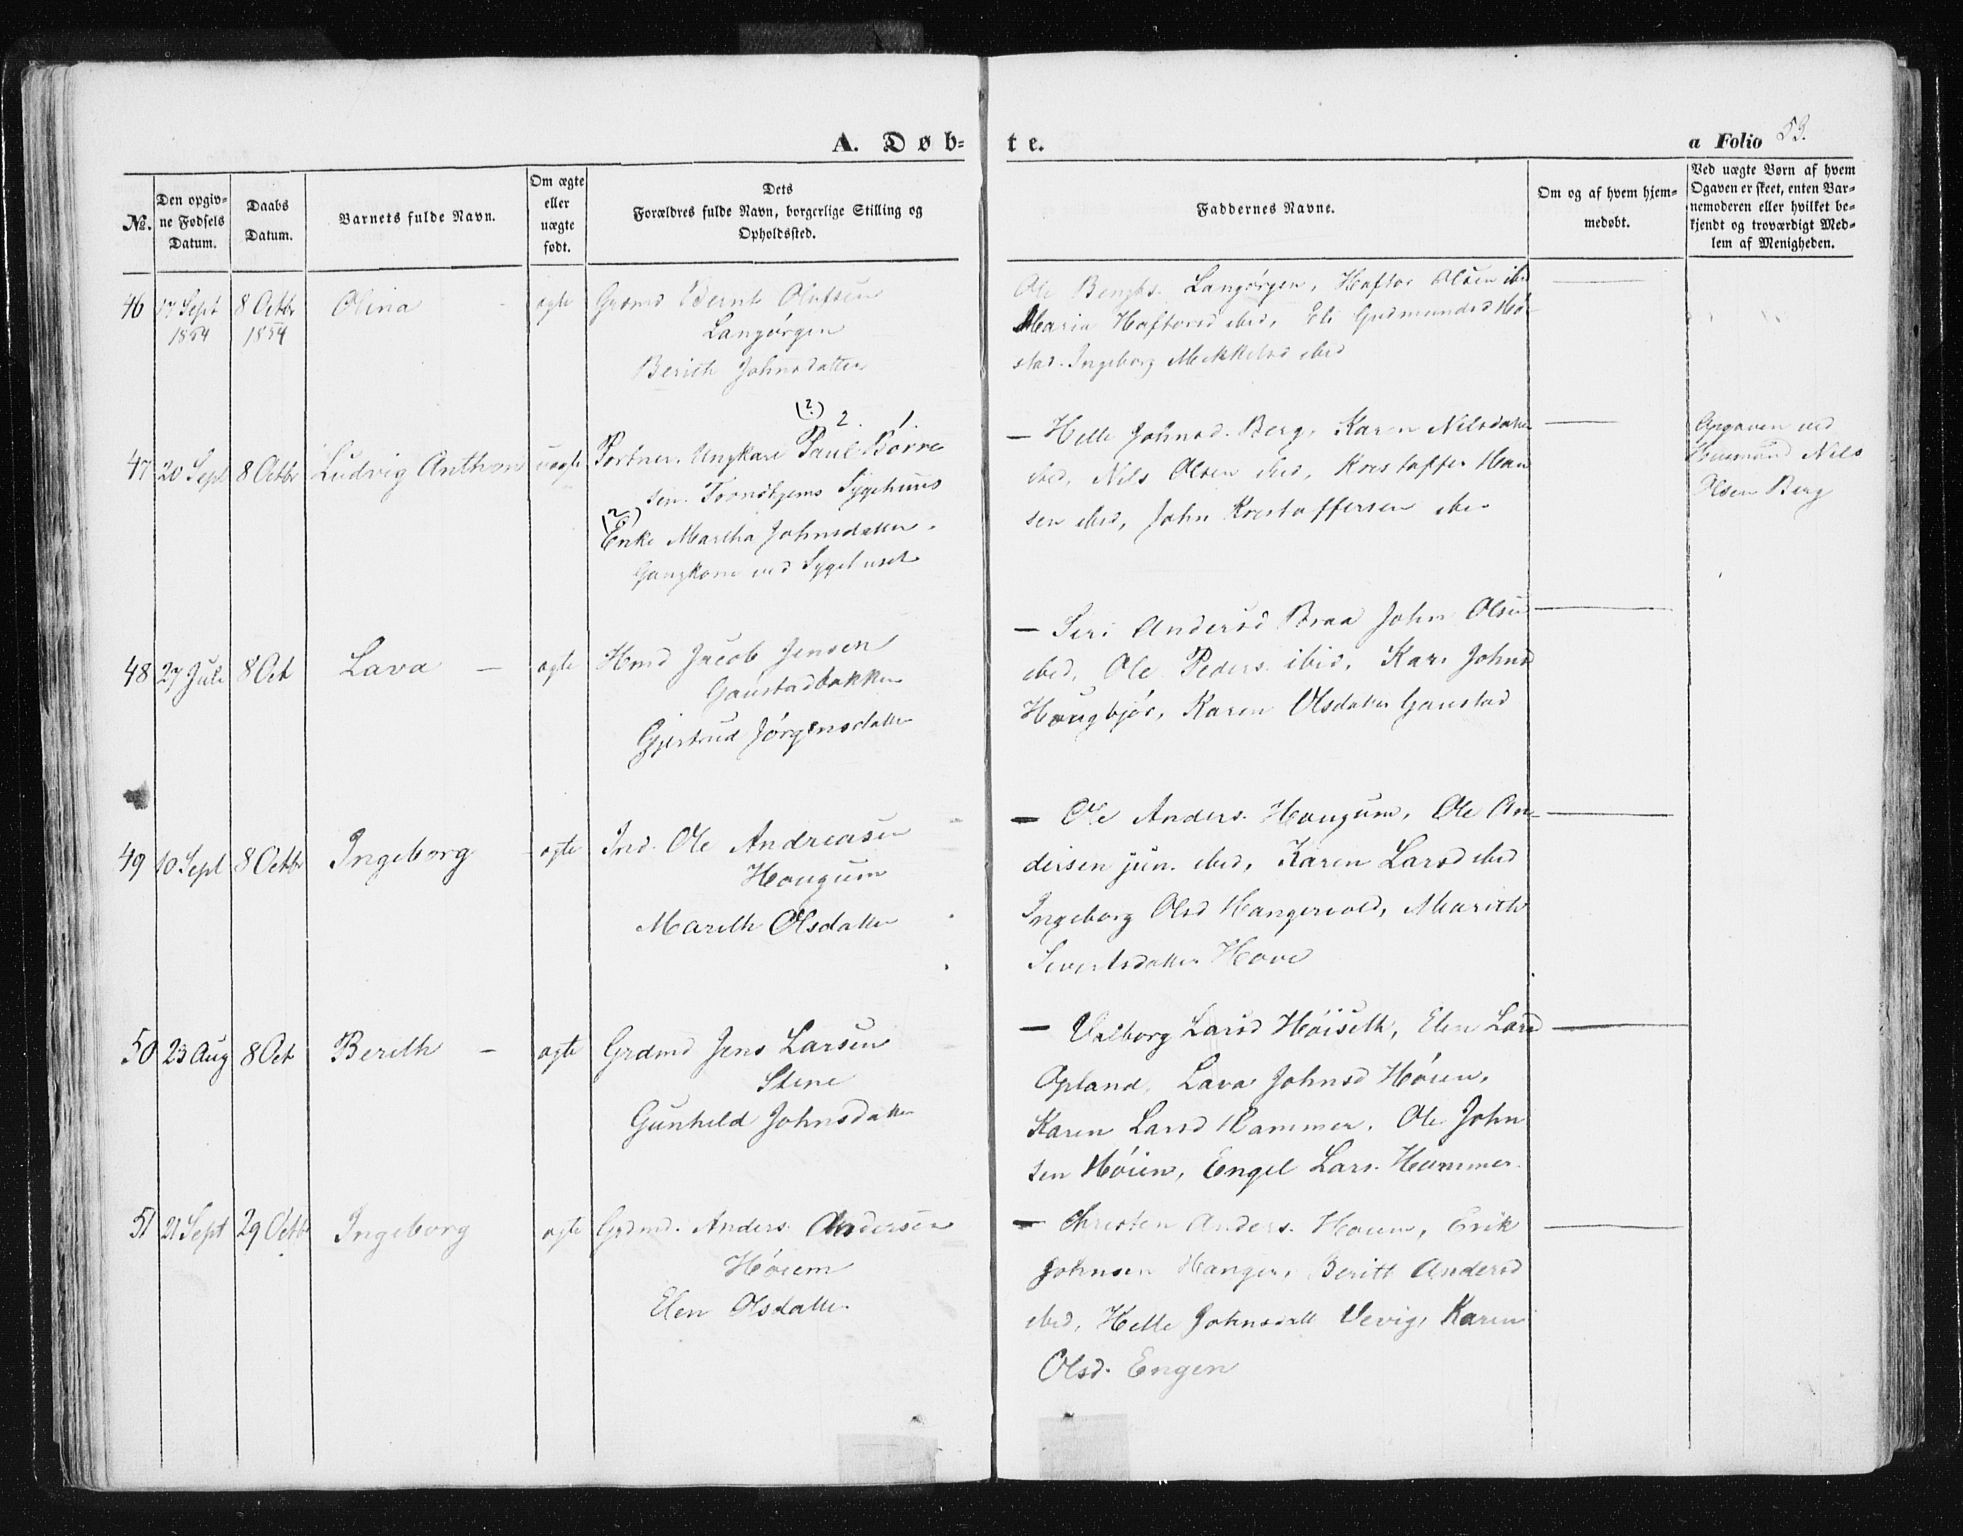 A. Døb-
te.
a Folio 53.
No.
Den opgiv-
ne Fødsels
Datum.
Daabs
Datum.
Barnets fulde Navn.
Om ægte
eller
uægte
født.
Dets
Forældres fulde Navn, borgerlige Stilling og
Opholdssted.
Faddernes Navne.
Om og af hvem hjem-
medøbt.
Ved uægte Børn af hvem
Ogaven er skeet, enten Bar-
nemoderen eller hvilket be-
kjendt og troværdigt Med-
lem af Menigheden.
46 17 Sept 8 Octbr Olina ægte Grdmd Bernt Olutsen
1854 1854 Langørgen
Berith Johnsdatter
Ole Bengts. Langørgen, Haftor Olsen ibid
Maria Haftorsd ibid, Eli Gudmundsd Hø-
stad. Ingeborg Mekkelsd ibid
47 20 Sept 8 Octbr Ludvig Anthon uægte Portner. Ungkarl Paul Børre
(?) 2. 1.
sen. Tronhjems Sygehuus
(?)
Enke Martha Johnsdatter.
Gangkone ved Sygehuset
— Helle Johnsd. Berg, Karen Nilsdatter
ibid, Nils Olsen ibid, Kristoffer Han
sen ibid, John Kristoffersen ibid
Opgaven ved
Huusmand Nils
Olsen Berg
48 27 Juli 8 Oct Lava — ægte Hmd Jacob Jensen
Gaustadbakken
Gjertrud Jørgensdatter
— Siri Andersd Braa John Olsen
ibid, Ole Peders. ibid, Kari Johnsd
Hougbjør, Karen Olsdatter Gaustad
49 10 Sept 8 Octbr Ingeborg — ægte Ind. Ole Andreasen
Hougum
Marith Olsdatter
— Ole Anders. Hougum, Ole An-
dersen jun. ibid, Karen Larsd ibid
Ingeborg Olsd Hangervold, Marith
Sivertsdatter Hove
50 23 Aug 8 Oct Berith — ægte Grdmd Jens Larsen
Stene
Gunhild Johnsdatter
— Valborg Larsd Høiseth, Elen Larsd
Opland, Lava Johnsd Høien,
Karen Larsd Hammer, Ole John
sen Høien, Engel Lars. Hammer.
51 21 Sept 29 Octbr Ingeborg ægte Grdmd. Anders Andersen
Høiem
Elen Olsdatter.
— Christen Anders. Hoiem, Erik
Johnsen Hanger, Beritt Andersd
ibid, Helle Johnsdatt Vevig, Karen
Olsd. Engen